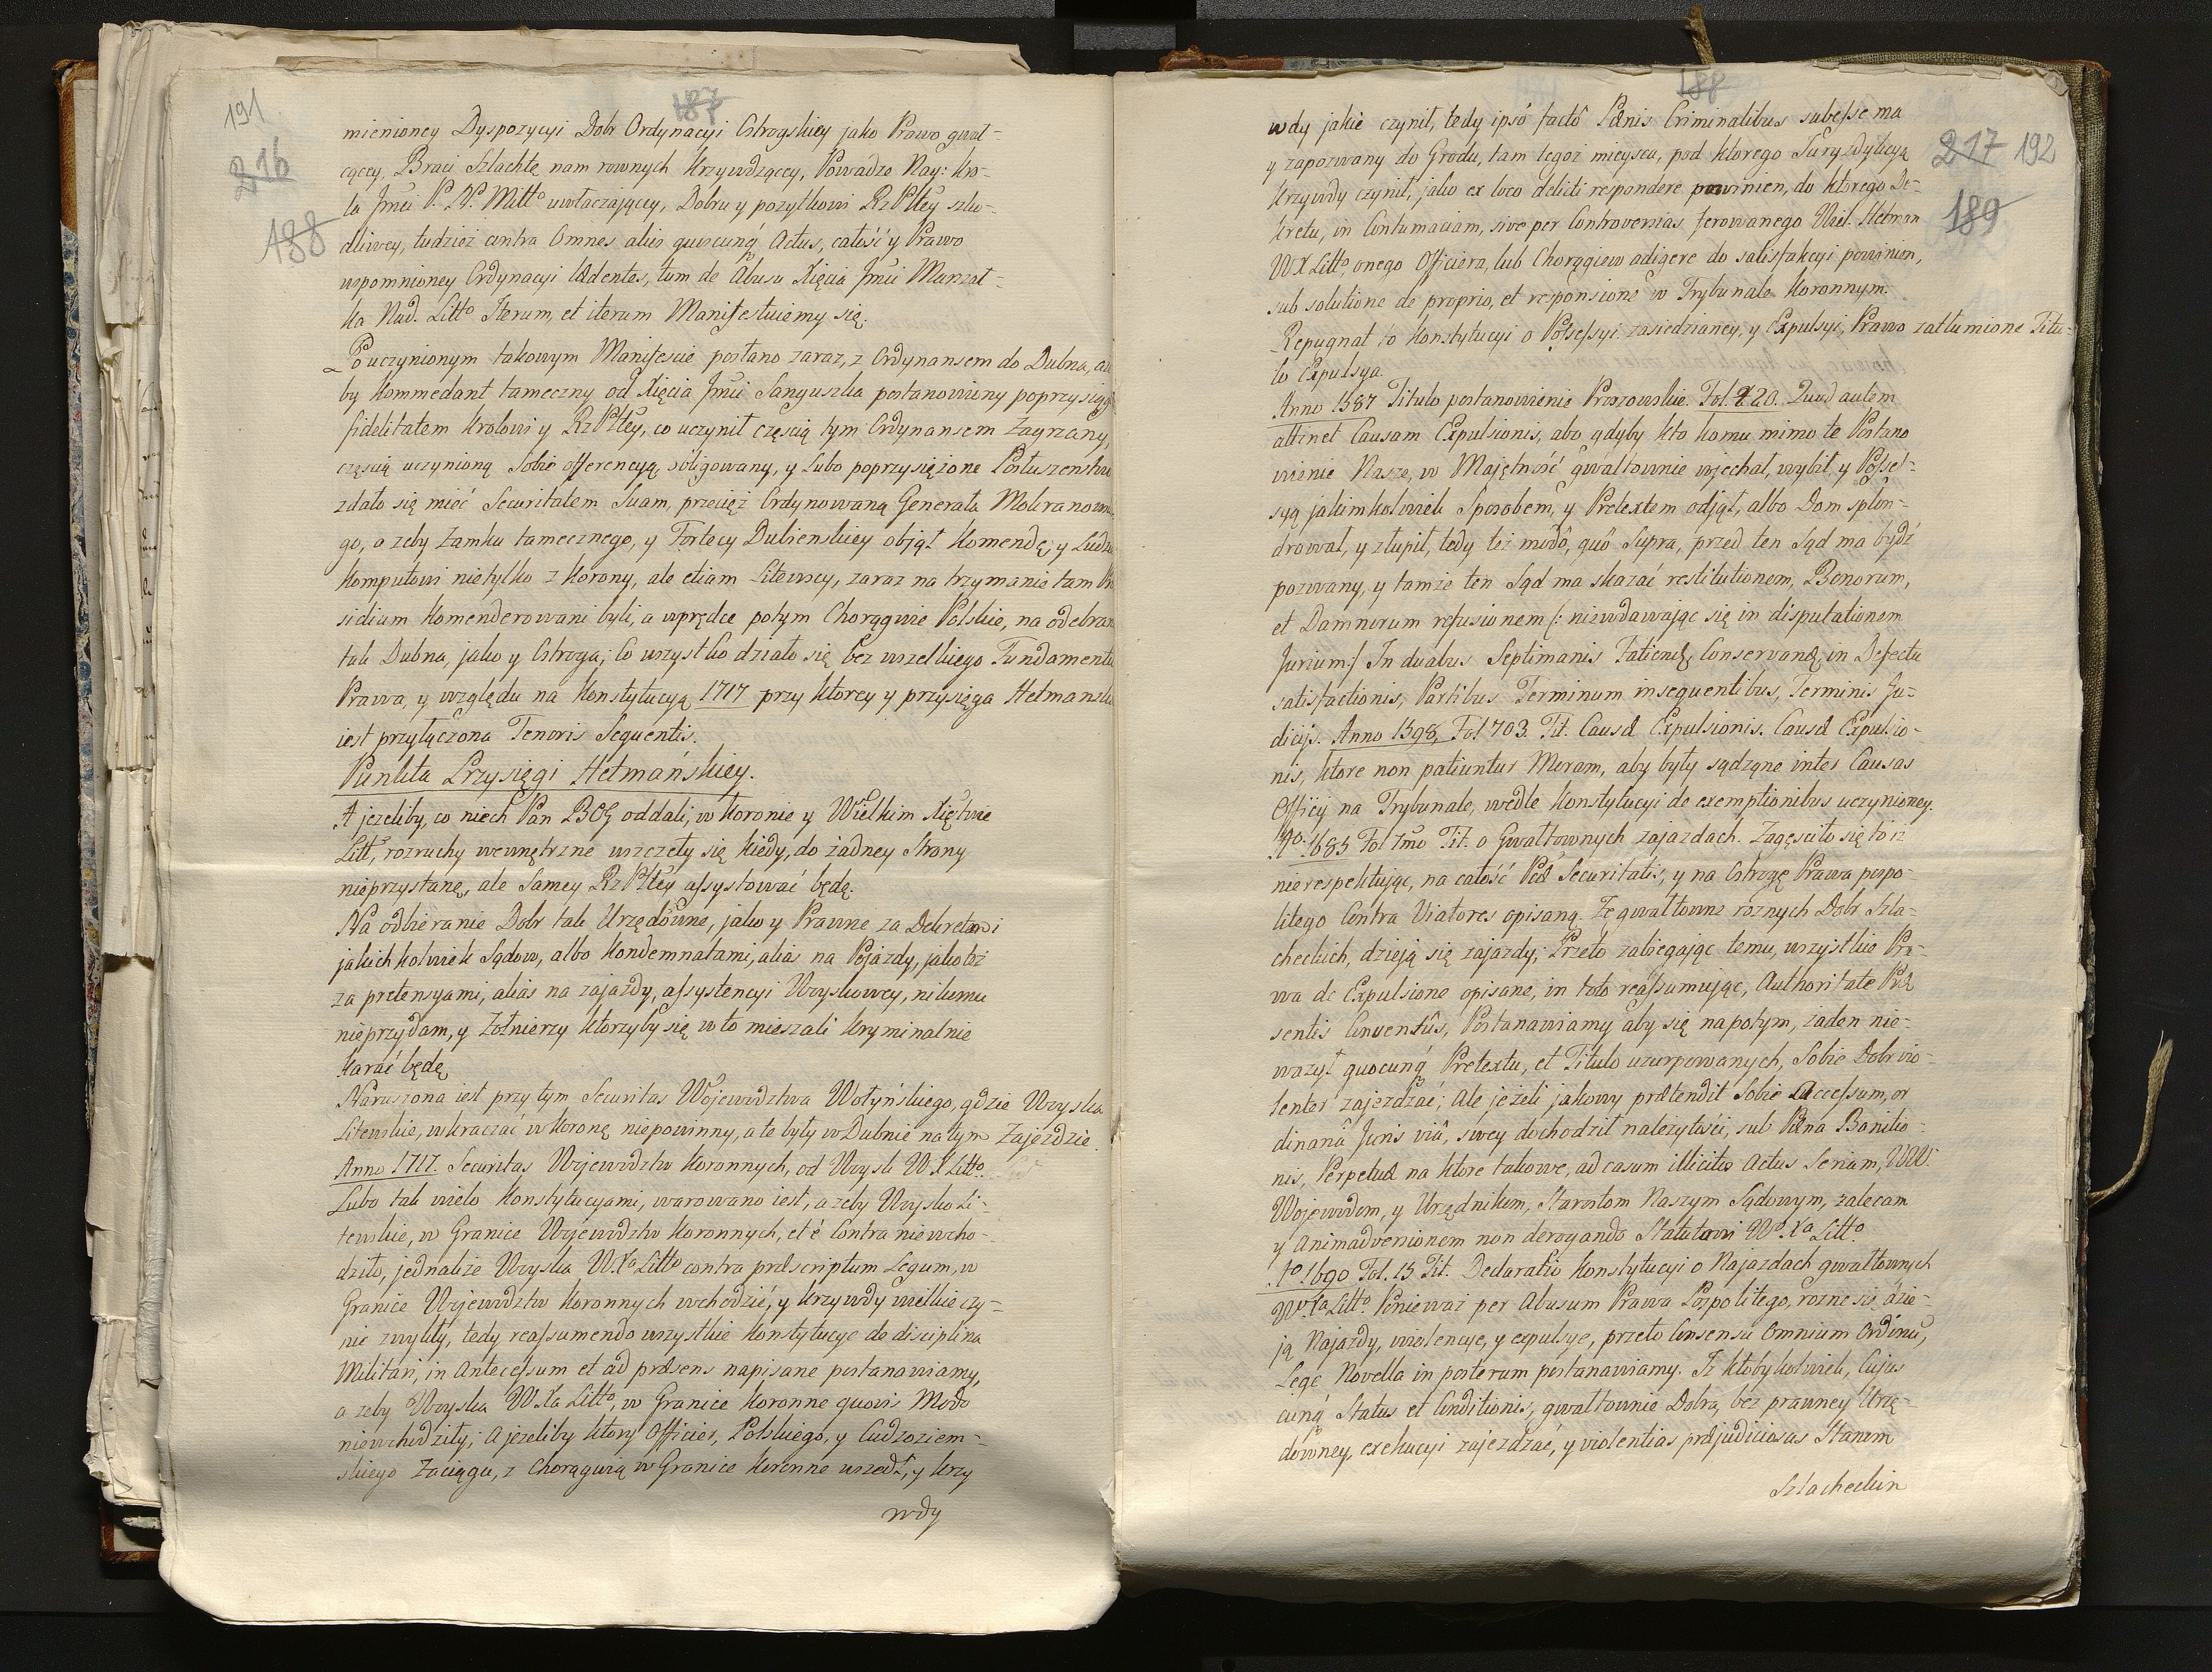 187
191
216
188
mienioney Dyspozycyi Dobr Ordynacyi Ostrogskiey jako Prawo gwał-
cącey, Braci Szlachtę nam rownych krzywdzącey, Powadze Nay: Kro-
la Jmći P. N. Mitto uwłaczającey, Dobru y pozytkowi RzPltey szko-
dliwey, tudzież contra Omnes alios quoscunq Actus, całość y Prawo
wspomnioney Ordynacyi lædentes, tum de Abusu Xięcia Jmći Marszał-
ka Nad. Litto Iterum, et iterum Manifestuiemy się.
Po uczynionym takowym Manifescie posłano zaraz, z Ordynansem do Dubna, a
by Kommedant tameczny od Xięcia Jmći Sanguszka postanowiony poprzysiągł
fidelitatem Krolowi y RzPltey, co uczynił częscią tym Ordynansem Zagrzany,
częscią uczynioną Sobie offerencyą obligowany, y Lubo poprzysiężone Posłuszenstwo
zdało się mieć Securitatem Suam, przecięż Ordynowaną Generała Mokranows
go, a zeby Zamku tamecznego, y Fortecy Dubienskiey objął Komendę, y Ludzi
Komputowi nietylko z Korony, ale etiam Litewscy, zaraz na trzymanie tam Pre
sidium Komenderowani byli, a wprędce potym Chorągwie Polskie, na odebran
tak Dubna, jako y Ostroga; Co wszystko działo się bez wszelkiego Fundamentu
Prawa, y względu na Konstytucyą 1717 przy ktorey y przysięga Hetmansk
iest przyłączona Tenoris Sequentis.
Punkta Przysięgi Hetmańskiey.
A jezeliby, co niech Pan BOg oddali, w Koronie y Wielkim Xięstwie
Litt, rozruchy wewnętrzne wszczęły się kiedy, do żadney Strony
nieprzystanę, ale Samey RzPltey assystować będę.
Na odbieranie Dobr tak Urzędowne, jako y Prawne za Dekretami
jakichkolwiek Sądow, albo Kondemnatami, alias na Pojazdy, jako też
za pretensyami, alias na zajazdy, assystencyi Woyskowey, nikomu
nieprzydam, y Żołnierzy ktorzyby się w to mieszali kryminalnie
karać będę
Naruszona iest przy tym Securitas Wojewodztwa Wołyńskiego, gdzie Woyska
Litewskie, wkraczać w Koronę niepowinny, a te były w Dubnie na tym Zajezdzie.
Anno 1717. Securitas Wojewodztw Koronnych, od Woysk W X Litto.
Lubo tak wielo Konstytucyami, warowano iest, a zeby Woysko Li-
tewskie, w Granice Wojewodztw Koronnych, et è Contra niewcho-
dziło, jednakże Woyska W.Xa Litto contra præscriptum Legum, w
Granice Wojewodztw Koronnych wchodzić, y krzywdy wielkie czy-
nić zwykły, tedy reassumendo wszystkie Konstytucye de disciplina
Militari, in Antecessum et ad præsens napisane postanawiamy,
a zeby Woyska W Xa Litto, w Granice Koronne quovis Modo
niewchodziły; A jezeliby ktory Officier, Polskiego, y Cudzoziem-
skiego Zaciągu, z Chorągwią w Granice Koronne wszedł, y krzy
wdy
188
217 192
189
wdy jakie czynił, tedy ipsó factô Pænis Criminalibus subesse ma
y zapozwany do Grodu, tam tegoż mieysca, pod ktorego Juryzdykcyą
krzywdy czynił, jako ex loco delicti respondere powinien, do ktorego De-
kretu, in Contumaciam, sive per Controversias ferowanego Wiel. Hetman
W X Litto, onego Officiera, lub Chorągiew adigere do satisfakcyi powinien,
sub solutione de proprio, et responsione w Trybunale Koronnym.
Repugnat to Konstytucyi o Possessyi zasiedzianey, y Expulsyi, Prawo zatłumione Titu-
lo Expulsya.
Anno 1587 Titulo postanowienie Proszowskie. Fol. 220. Quod autem
attinet Causam Expulsionis, abo gdyby kto komu mimo te Postano
wienie Nasze, w Majętność gwałtownie wjechał, wybił y Posses-
syą jakimkolwiek Sposobem, y Pretextem odjął, albo Dom splon-
drował, y złupił, tedy też modô, quô Supra, przed ten Sąd ma bydź
pozwany, y tamże ten Sąd ma skazać restitutionem, Bonorum,
et Damnorum refusionem (: niewdawając się in disputationem
Jurium:) In duabus Septimanis Faciendę, Conservandę, in Defectu
satisfactionis, Partibus Terminum in sequentibus, Terminis Ju-
dicijs. Anno 1598, Fol 703. Tit. Causæ Expulsionis. Causæ Expulsio-
nis, ktore non patiuntur Moram, aby były sądzone inter Causas
Officij na Trybunale, wedle Konstytucyi de exemptionibus uczynioney.
Ao. 1685 Fol 7mo Tit. o Gwałtownych zajazdach. Zagęsciło się to iż
nierespektując, na całość Pcæ Securitatis, y na Ostrogę Prawa pospo-
litego Contra Viatores opisaną. Że gwałtowne roznych Dobr Szla-
checkich, dzieją się zajazdy; Przeto zabiegając temu, wszystkie Pra-
wa de Expulsione opisane, in toto reassumując, Authoritate Præ
sentis Conventûs, Postanawiamy aby się napotym, żaden nie-
ważył quocunq Pretextu, et Titulo uzurpowanych, Sobie Dobr vio-
lenter zajezdzać; Ale jeżeli jakowy prætendit Sobie Accessum, or
dinariâ Juris viâ, swey dochodził należytości, sub Pæna Bannitio-
nis, Perpetuæ na ktore takowe, ad casum illicitos Actus Seriam, WW.
Wojewodom, y Urzędnikom, Starostom Naszym Sądowym, zalecam
y Animadversionem non derogando Statutowi Wo. Xa Litto.
Ao 1690 Fol. 15 Tit. Declaratio Konstytucyi o Najazdach gwałtownych
Wo. Xa Litto. Ponieważ per Abusum Prawa Pospolitego, rozne się dzie-
ją Najazdy, violencye, y expulsye, przeto Consensu Omnium Ordinû,
Lege Novella in posterum postanawiamy. Iż ktobykolwiek, Cujus
cunq Status et Conditionis, gwałtownie Dobra, bez prawney Urzę-
downey, exekucyi zajezdzać, y violentias præjudiciosas Stanom
Szlacheckim